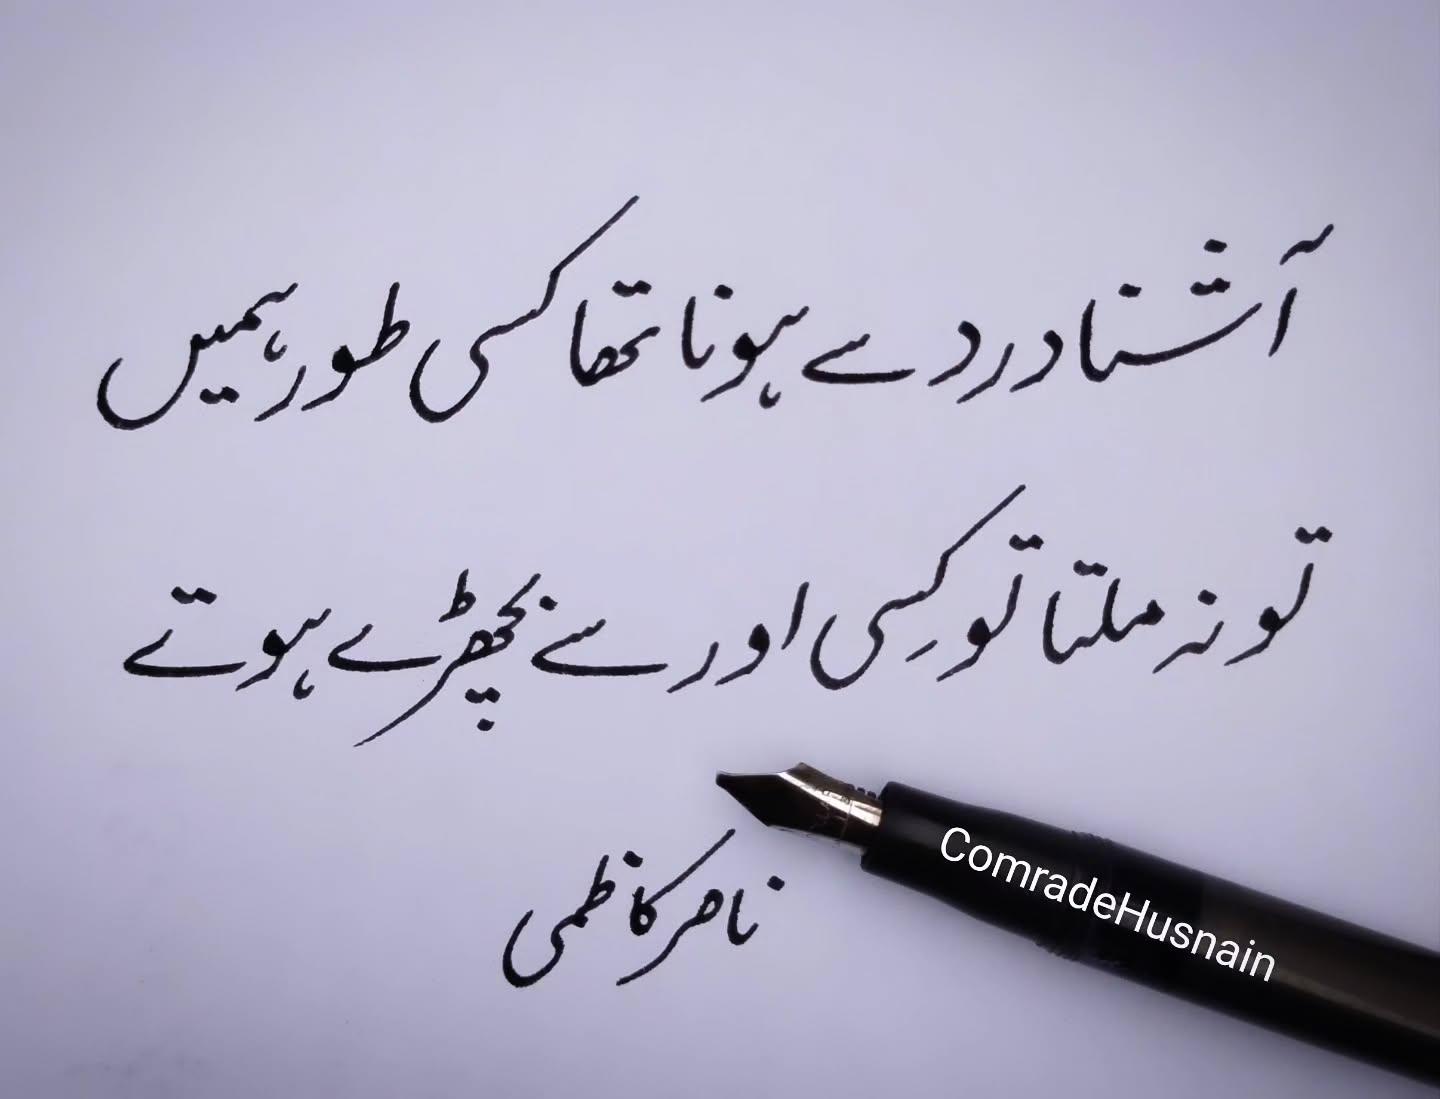 آشنا درد سے ہونا تھا کسی طور ہمیں
تو نہ ملتا تو کِسی اور سے بچھڑے ہوتے
ناصر کاظمی
ComradeHusnain